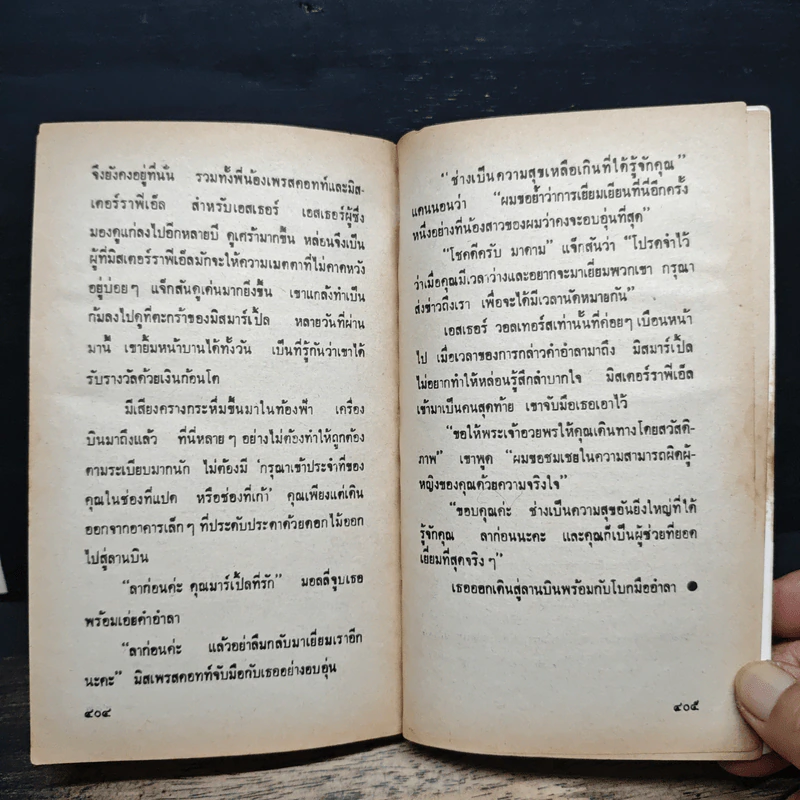 จึงยังคงอยู่ที่นั่น รวมทั้งพี่น้องเพรสคอทท์และมิส-
เตอร์ราฟีเอ็ล สำหรับเอสเธอร์ เอสเธอร์ผู้ซึ่ง
มองดูแก่ลงไปอีกหลายปี ดูเศร้ามากขึ้น หล่อนจึงเป็น
ผู้ที่มิสเตอร์ราฟีเอ็ลมักจะให้ความเมตตาที่ไม่คาดหวัง
อยู่บ่อยๆ แจ็กสันดูเด่นมากยิ่งขึ้น เขาแกล้งทำเป็น
ก้มลงไปดูที่ตะกร้าของมิสมาร์เปิ้ล หลายวันที่ผ่าน
มานี้ เขายิ้มหน้าบานได้ทั้งวัน เป็นที่รู้กันว่าเขาได้
รับรางวัลด้วยเงินก้อนโต
มีเสียงครางกระหึ่มขึ้นมาในท้องฟ้า เครื่อง
บินมาถึงแล้ว ที่นี่หลายๆ อย่างไม่ต้องทำให้ถูกต้อง
ตามระเบียบมากนัก ไม่ต้องมี ‘กรุณาเข้าประจำที่ของ
คุณในช่องที่แปด หรือช่องที่เก้า’ คุณเพียงแต่เดิน
ออกจากอาคารเล็กๆ ที่ประดับประดาด้วยดอกไม้ออก
ไปสู่ลานบิน
“ลาก่อนค่ะ คุณมาร์เปิ้ลที่รัก” มอลลี่จูบเธอ
พร้อมเอ่ยคำอำลา
“ลาก่อนค่ะ แล้วอย่าลืมกลับมาเยี่ยมเราอีก
นะคะ” มิสเพรสคอทท์จับมือกับเธออย่างอบอุ่น
๔๐๔
“ช่างเป็นความสุขเหลือเกินที่ได้รู้จักคุณ”
แคนนอนว่า “ผมขอย้ำว่าการเยี่ยมเยียนที่นี่อีกครั้ง
หนึ่งอย่างที่น้องสาวของผมว่าคงจะอบอุ่นที่สุด”
“โชคดีครับ มาดาม” แจ็กสันว่า “โปรดจำไว้
ว่าเมื่อคุณมีเวลาว่างและอยากจะมาเยี่ยมพวกเขา กรุณา
ส่งข่าวถึงเรา เพื่อจะได้มีเวลานัดหมายกัน”
เอสเธอร์ วอลเทอร์สเท่านั้นที่ค่อยๆ เบือนหน้า
ไป เมื่อเวลาของการกล่าวคำอำลามาถึง มิสมาร์เปิ้ล
ไม่อยากทำให้หล่อนรู้สึกลำบากใจ มิสเตอร์ราฟีเอ็ล
เข้ามาเป็นคนสุดท้าย เขาจับมือเธอเอาไว้
“ขอให้พระเจ้าอวยพรให้คุณเดินทางโดยสวัสดิ-
ภาพ” เขาพูด “ผมขอชมเชยในความสามารถผิดผู้-
หญิงของคุณด้วยความจริงใจ”
“ขอบคุณค่ะ ช่างเป็นความสุขอันยิ่งใหญ่ที่ได้
รู้จักคุณ ลาก่อนนะคะ และคุณก็เป็นผู้ช่วยที่ยอด
เยี่ยมที่สุดจริงๆ”
เธอออกเดินสู่ลานบินพร้อมกับโบกมืออำลา ●
๔๐๕